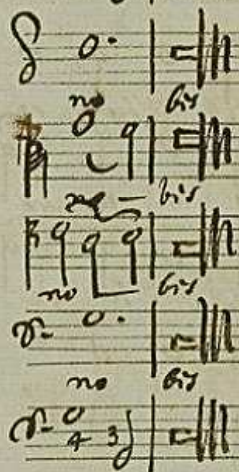 no bis
no - bis
no bis
no bis
4 3